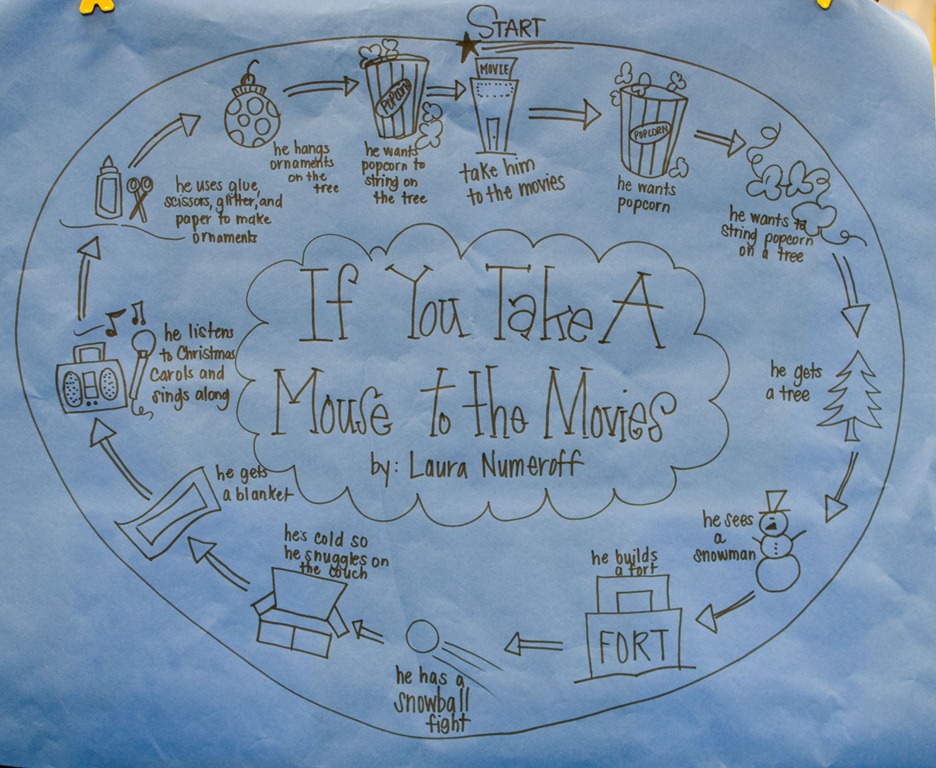 START
MOVIE
take him
to the movies
POPCORN
he wants
popcorn
he wants to
string popcorn
on a tree
he gets
a tree
he sees
a
snowman
he builds
a fort
FORT
he has a
snowball
fight
he's cold so
he snuggles on
the couch
he gets
a blanket
he listens
to Christmas
Carols and
sings along
he uses glue,
scissors, glitter, and
paper to make
ornaments
he hangs
ornaments
on the
tree
POPCORN
he wants
popcorn to
string on
the tree
If You Take A
Mouse to the Movies
by: Laura Numeroff